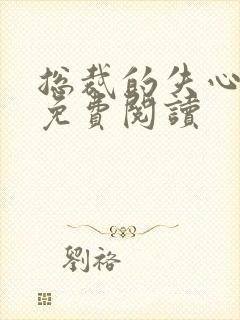 总裁的失心
免費閱讀
劉裕